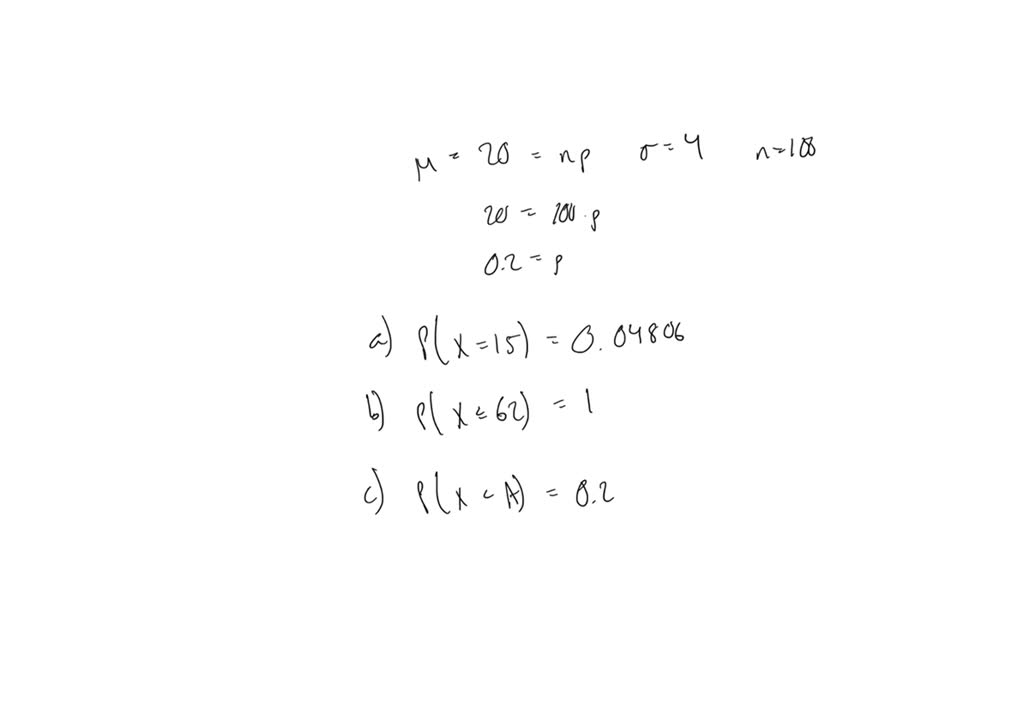 μ = 20 = np σ = 4 n = 100
20 = 100 · p
0.2 = p
a) P(X = 15) = 0.04806
b) P(X ≤ 62) = 1
c) P(X < A) = 0.2